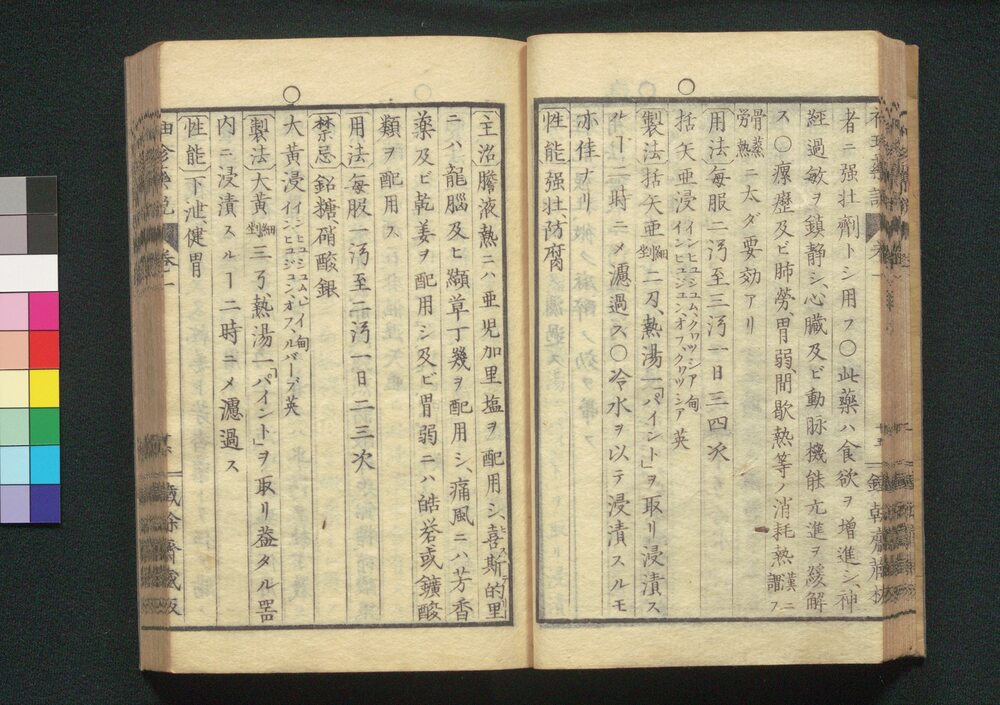 者ニ强壮劑トシ用フ○此藥ハ食欲ヲ增進シ、神
經過敏ヲ鎮静シ、心臓及ビ動脉機能亢進ヲ緩解
ス○瘰癧及ビ肺勞、胃弱、間歇熱等ノ消耗熱漢ニ謂フ
骨蒸勞熱ニ太ダ要効アリ
用法 每服二汚至三汚一日三四次
○
括矢亜浸 インヒュシュム、クワッシア 甸 インヒュジュン、オフ、クワッシア 英
製法 括矢亜 細剉 二刄、熱湯一「パイント」ヲ取リ浸漬ス
ルヿ一時ニメ濾過ス○冷水ヲ以テ浸漬スルモ
亦佳ナリ
性能 强壮、防腐
主治 膽液熱ニハ亜児加里塩ヲ配用シ、喜斯的里
ニハ龍腦及ヒ纈草丁幾ヲ配用シ、痛風ニハ芳香
藥及ビ乾姜ヲ配用シ及ビ胃弱ニハ皓礬或鑛酸
類ヲ配用ス
用法 每服一汚至二汚一日二三次
禁忌 鉛糖硝酸銀
○
大黄浸 英
製法 大黄 細剉 三丂、熱湯一「パイント」ヲ取リ葢タル器
内ニ浸漬スルヿ二時ニメ濾過ス
性能 下泄、健胃